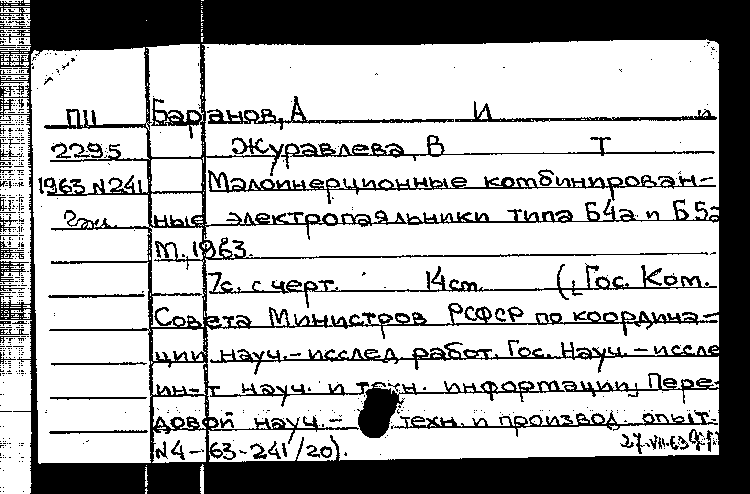 ПII Баранов, А И и
2295 Журавлева, В Т
1963 N241 Малоинерционные комбинирован-
ные электропаяльники типа Б4а и Б5а
М., 1963.
7с. с черт. 14см. (Гос. Ком.
Совета Министров РСФСР по координа-
ции науч.-исслед работ. Гос. Науч.-иссле
ин-т науч. и техн. информации, Пере-
довой науч.- техн. и производ. опыт.
N4-63-241/20).
27.VII.63